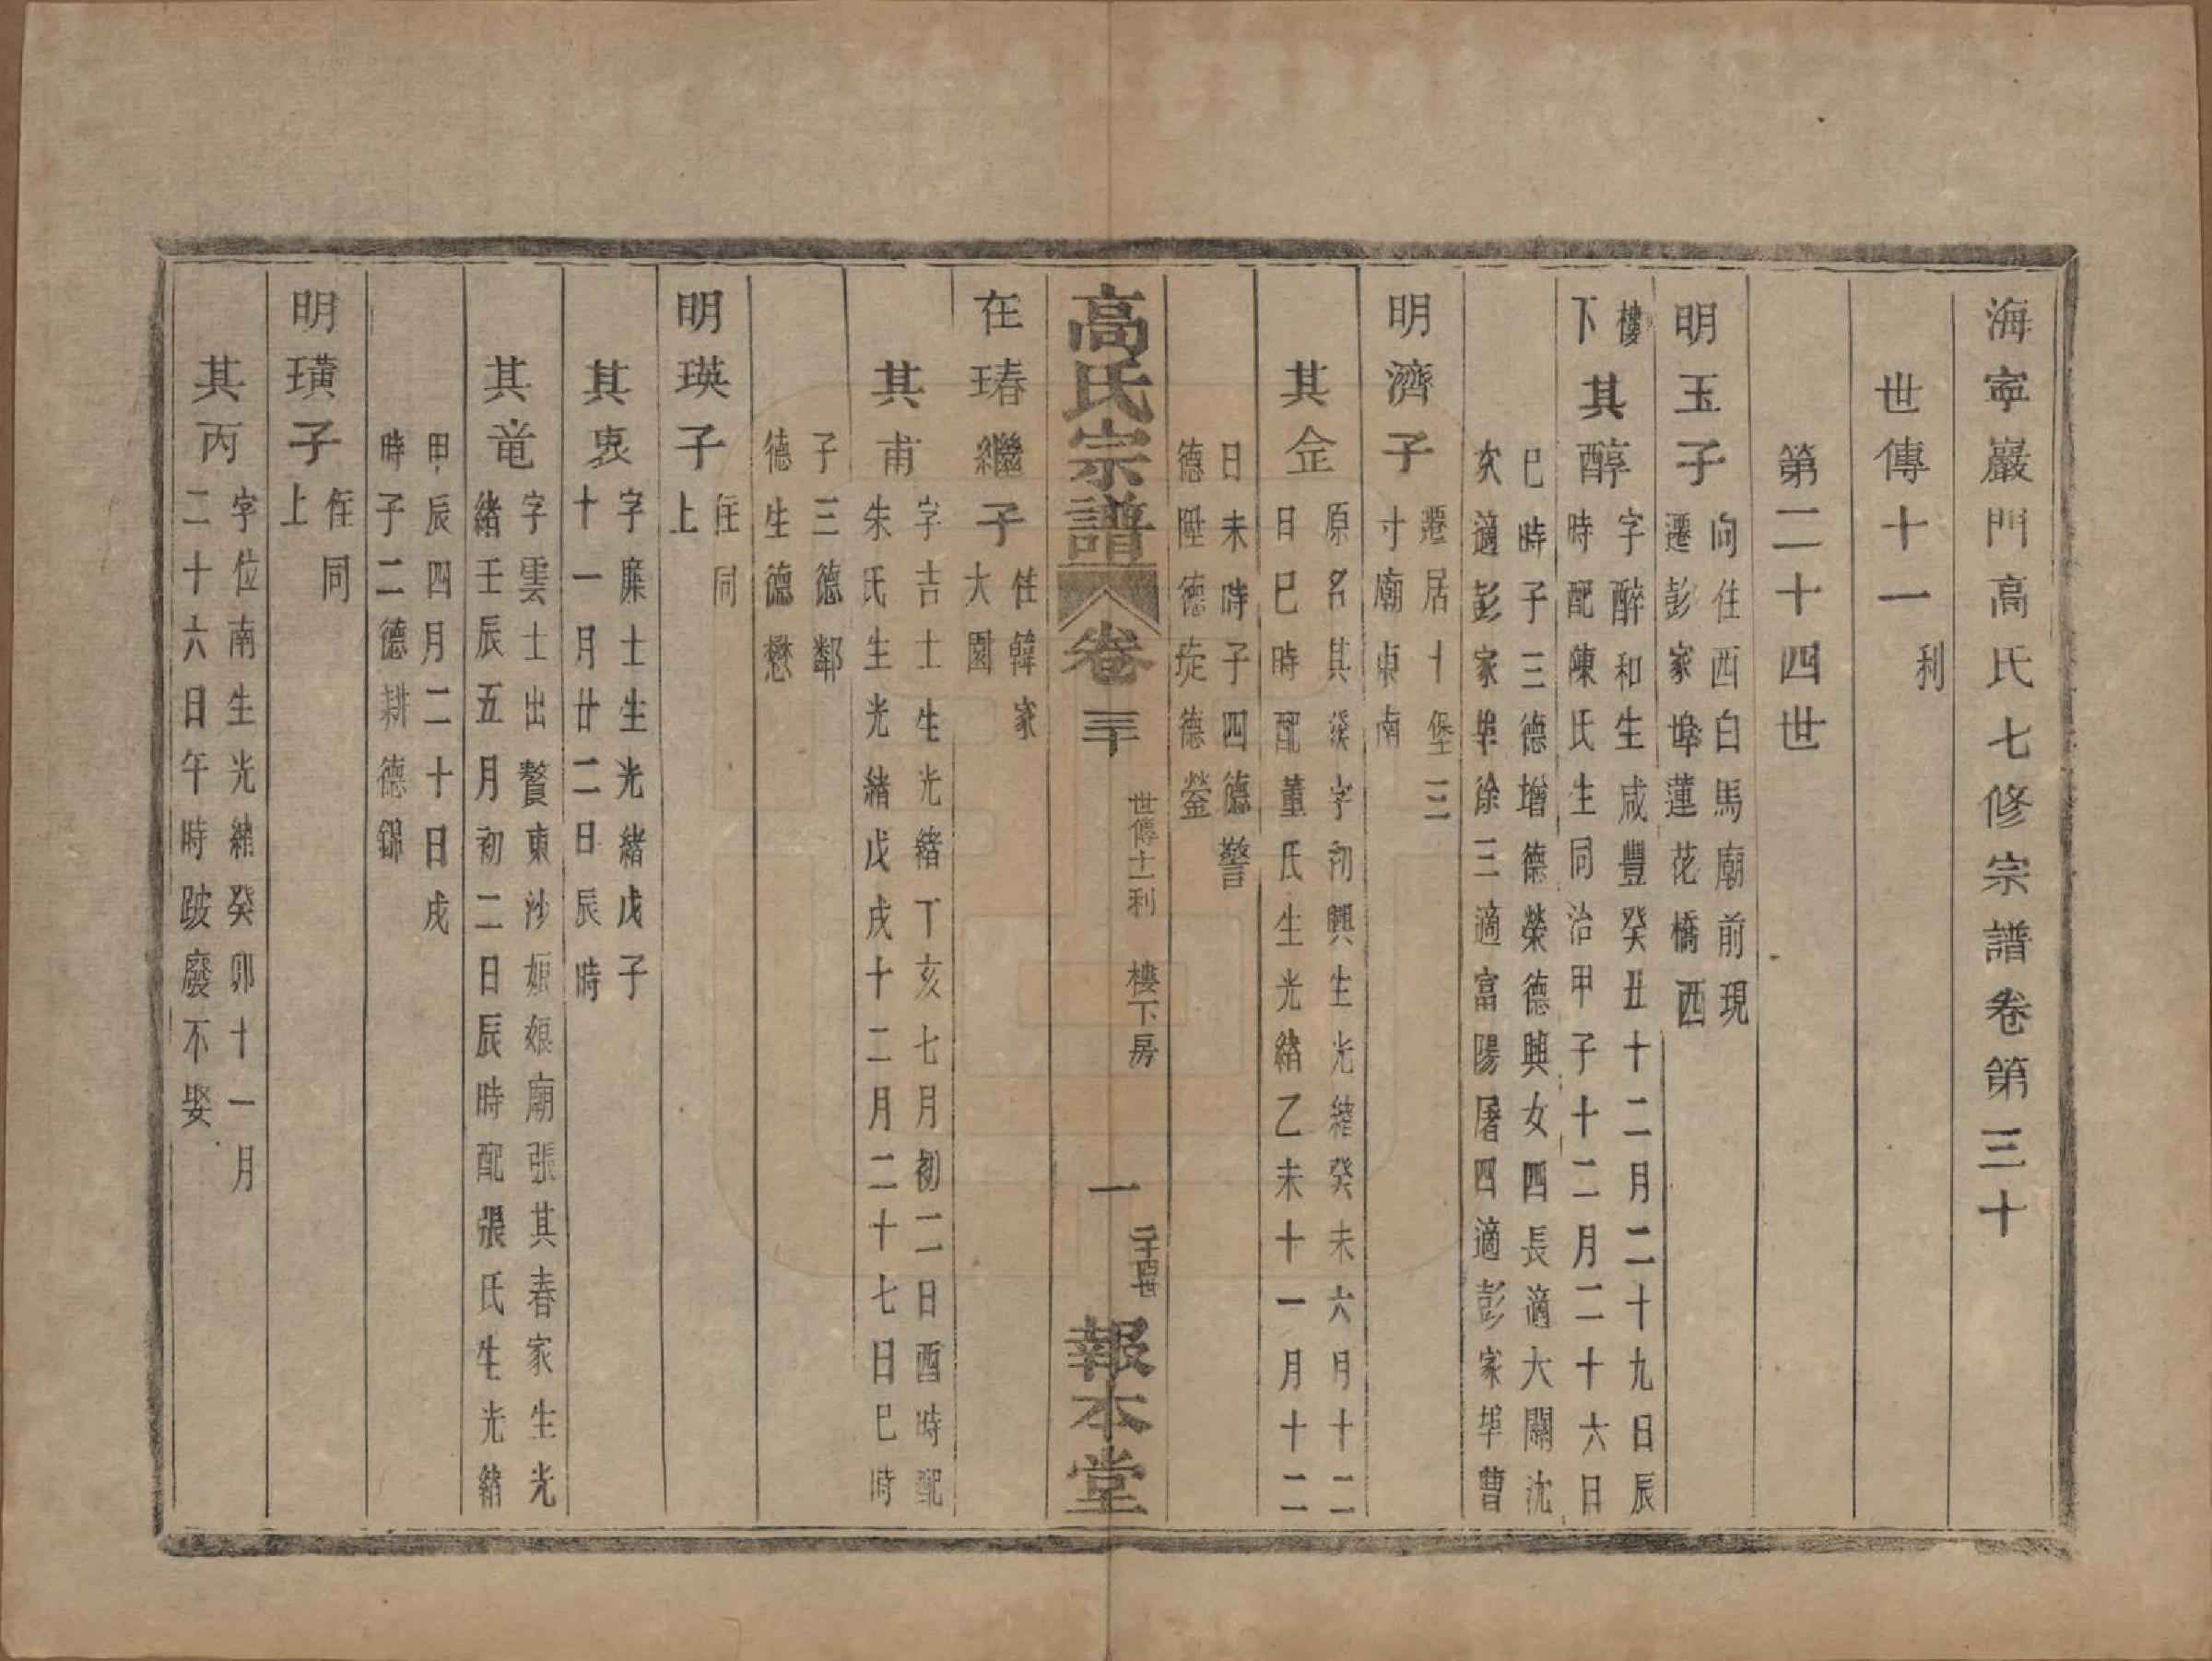 海寧巖門高氏七修宗譜卷第三十
世傳十一 利
第二十四世
明玉子 向住西白馬廟前現
遷彭家埠蓮花橋西
樓下 其醇 字醉和生咸豐癸丑十二月二十九日辰
時配陳氏生同治甲子十二月二十六日
巳時子三德增德榮德興女四長適大關沈
次適彭家埠徐三適富陽屠四適彭家埠曹
明濟子 遷居十堡三
寸廟東南
其企 原名其溪字初興生光緒癸未六月十二
日巳時配董氏生光緒乙未十一月十二
日未時子四德警
德陞德琁德鎣
高氏宗譜 卷三十 世傳十一利 樓下房 一 二十四世 報本堂
在瑃繼子 住韓家
大園
其甫 字吉士生光緒丁亥七月初二日酉時配
朱氏生光緒戊戌十二月二十七日巳時
子三德鄰
德生德懋
明瑛子 住同
上
其衷 字廉士生光緒戊子
十一月廿二日辰時
其竜 字雲士出贅東沙娘娘廟張其春家生光
緒壬辰五月初二日辰時配張氏生光緒
甲辰四月二十日戌
時子二德耕德錦
明璜子 住同
上
其丙 字位南生光緒癸卯十一月
二十六日午時跛廢不娶